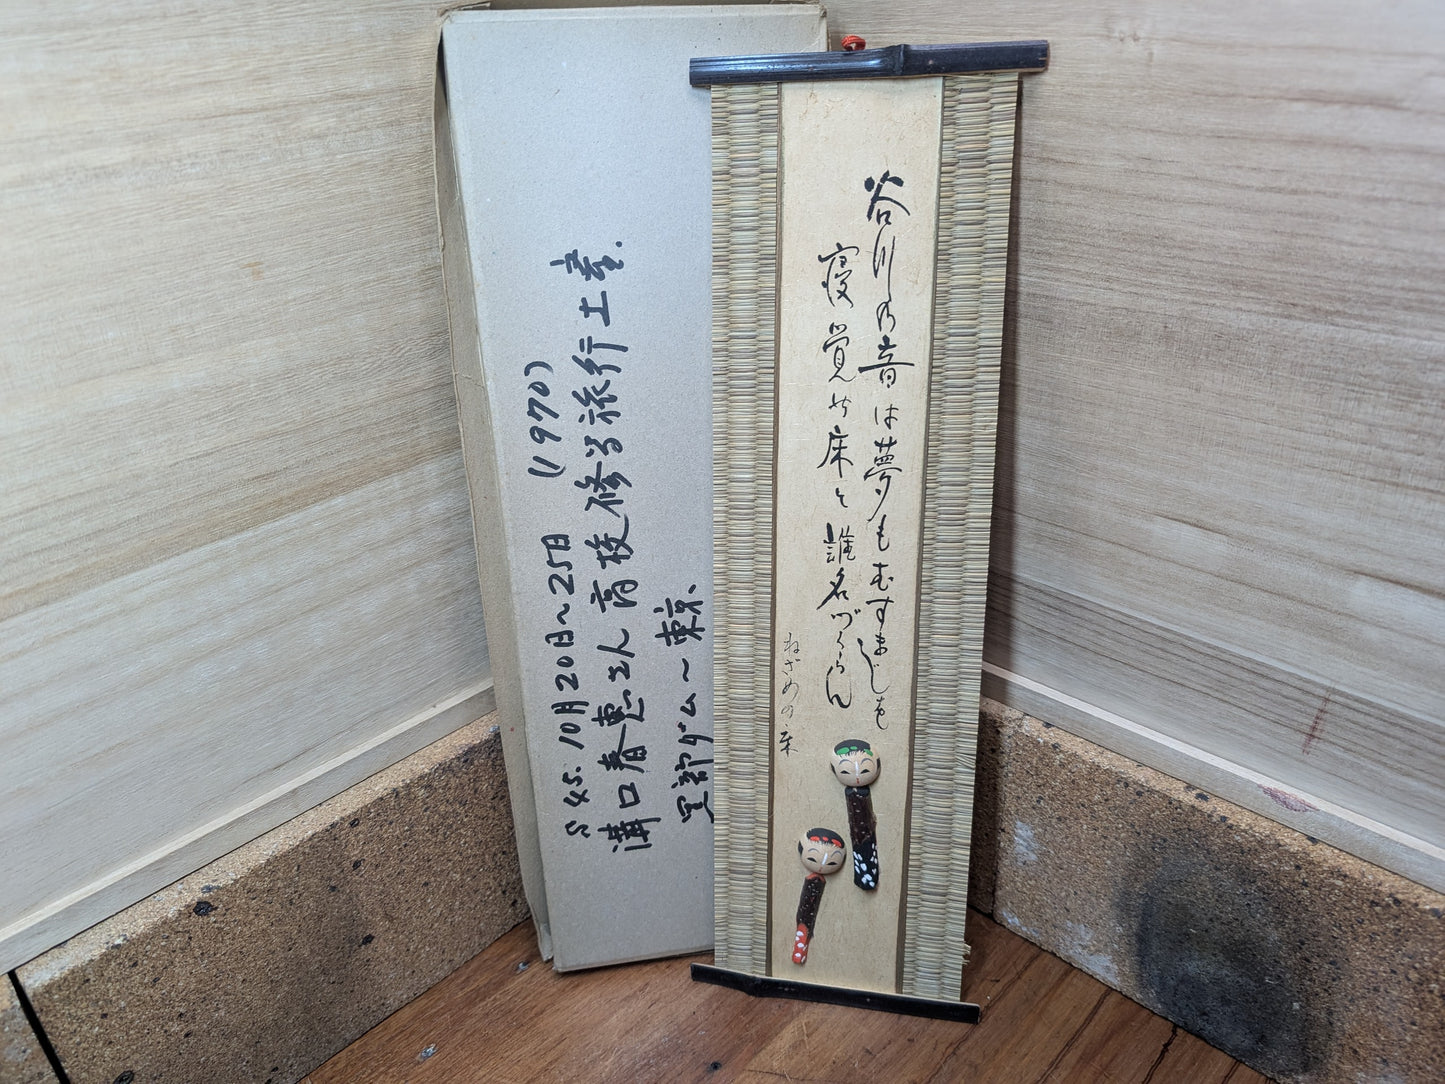 S45.10月20日～25日 (1970)
溝口春恵さん高校修学旅行土産.
黒部ダム～東京.
谷川の音は夢もむすましを
寝覚の床と誰名づくらん
ねざめの床